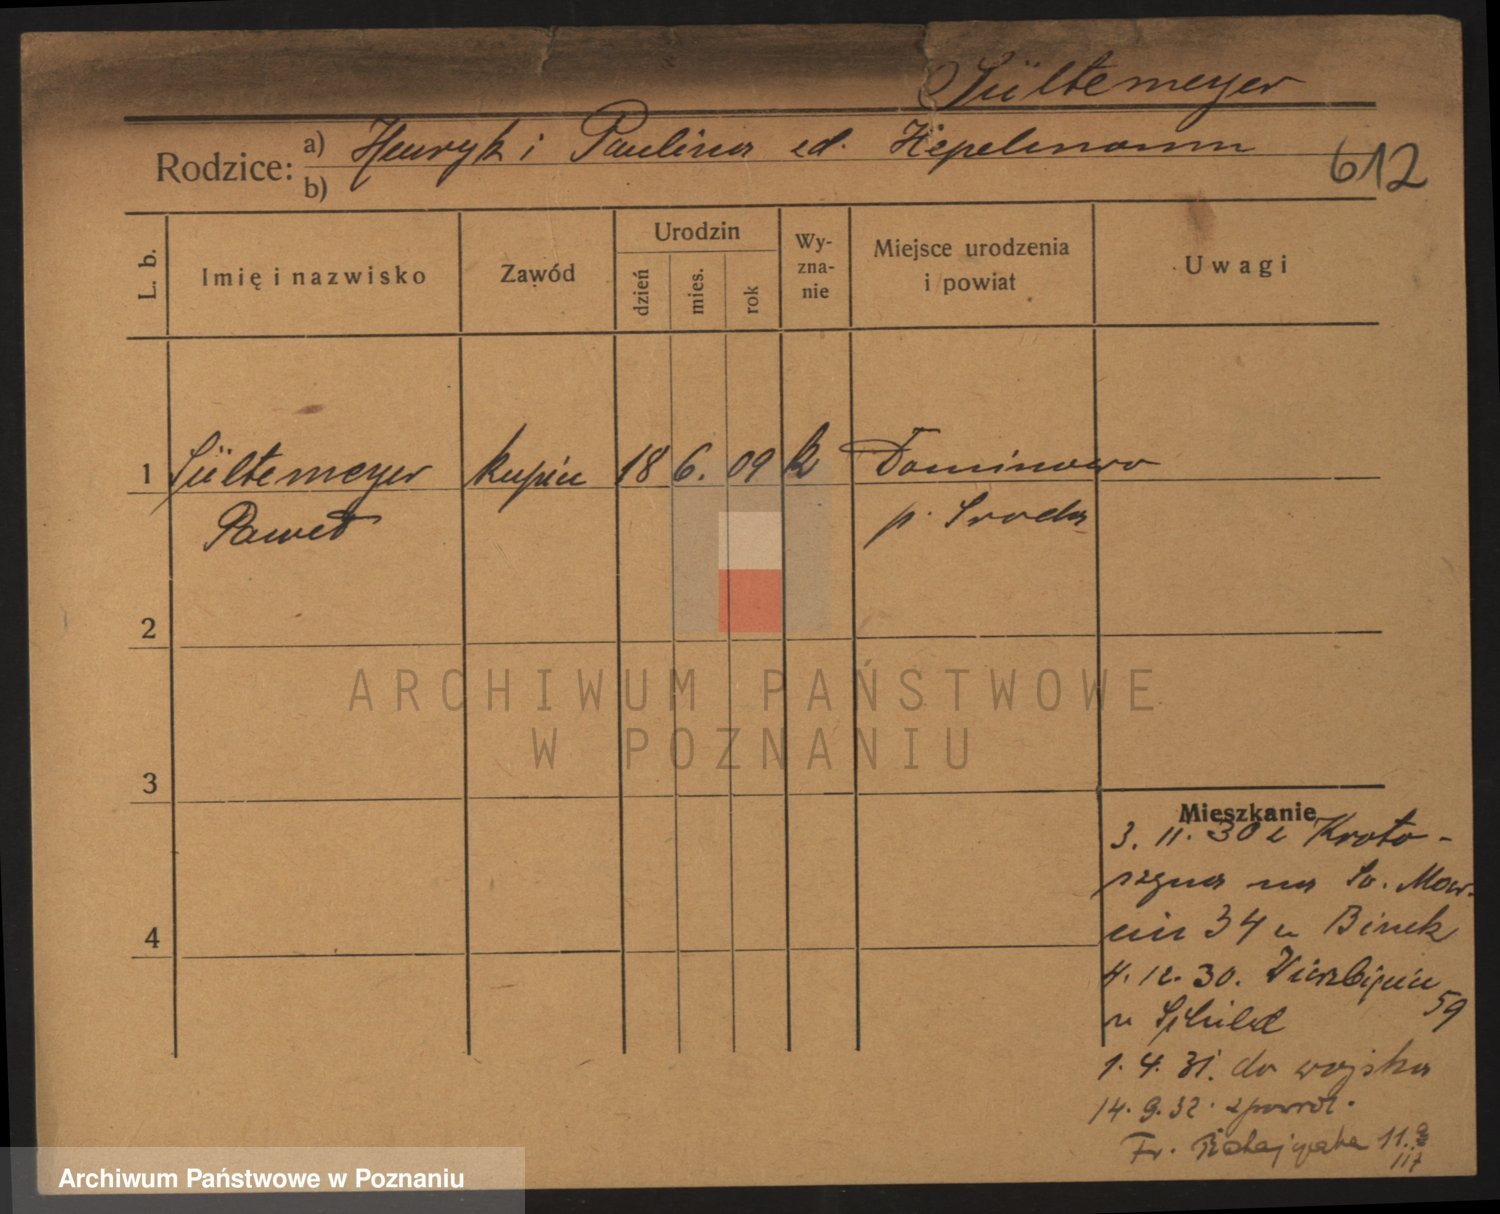 Sültemeyer
Rodzice: a) Henryk i Paulina zd. Hepelmann
b)
612
L. b.
Imię i nazwisko
Zawód
Urodzin
dzień
mies.
rok
Wy-
zna-
nie
Miejsce urodzenia
i powiat
Uwagi
1 Sültemeyer kupiec 18 6. 09 k Dominowo
Paweł p. Środa
2
3
4
Mieszkanie
3. 11. 30 z Kroto-
szyna na Św. Mar-
cin 34 u Binek
4. 12. 30. Wierzbięcice 59
u Schild
1. 4. 31. do wojska
14. 9. 32. zpowrot.
Fr. Ratajczaka 11.a
III
ARCHIWUM PAŃSTWOWE
W POZNANIU
Archiwum Państwowe w Poznaniu